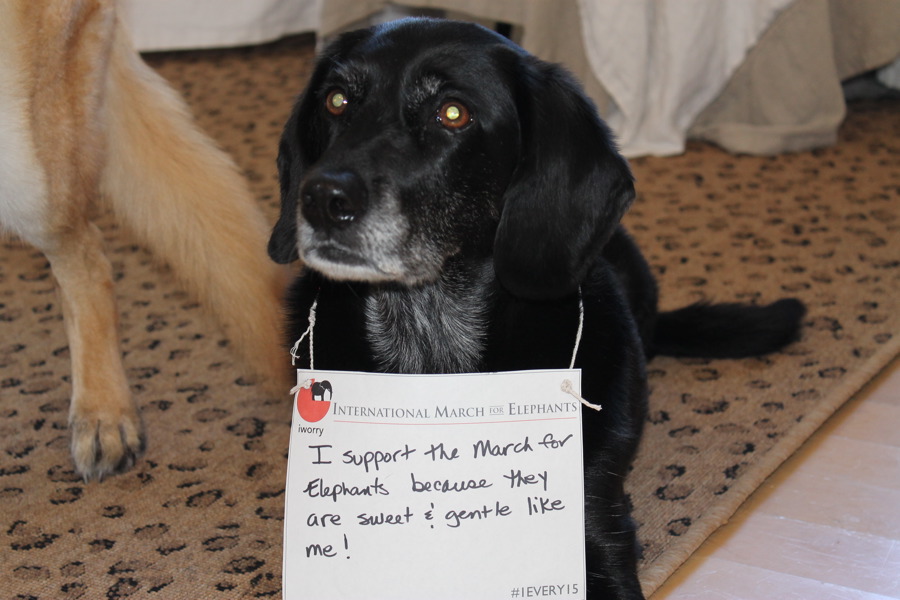 International March for Elephants
iworry
I support the March for
Elephants because they
are sweet & gentle like
me!
#1EVERY15